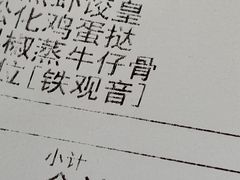 虾饺皇
化鸡蛋挞
椒蒸牛仔骨
位[铁观音]
小计